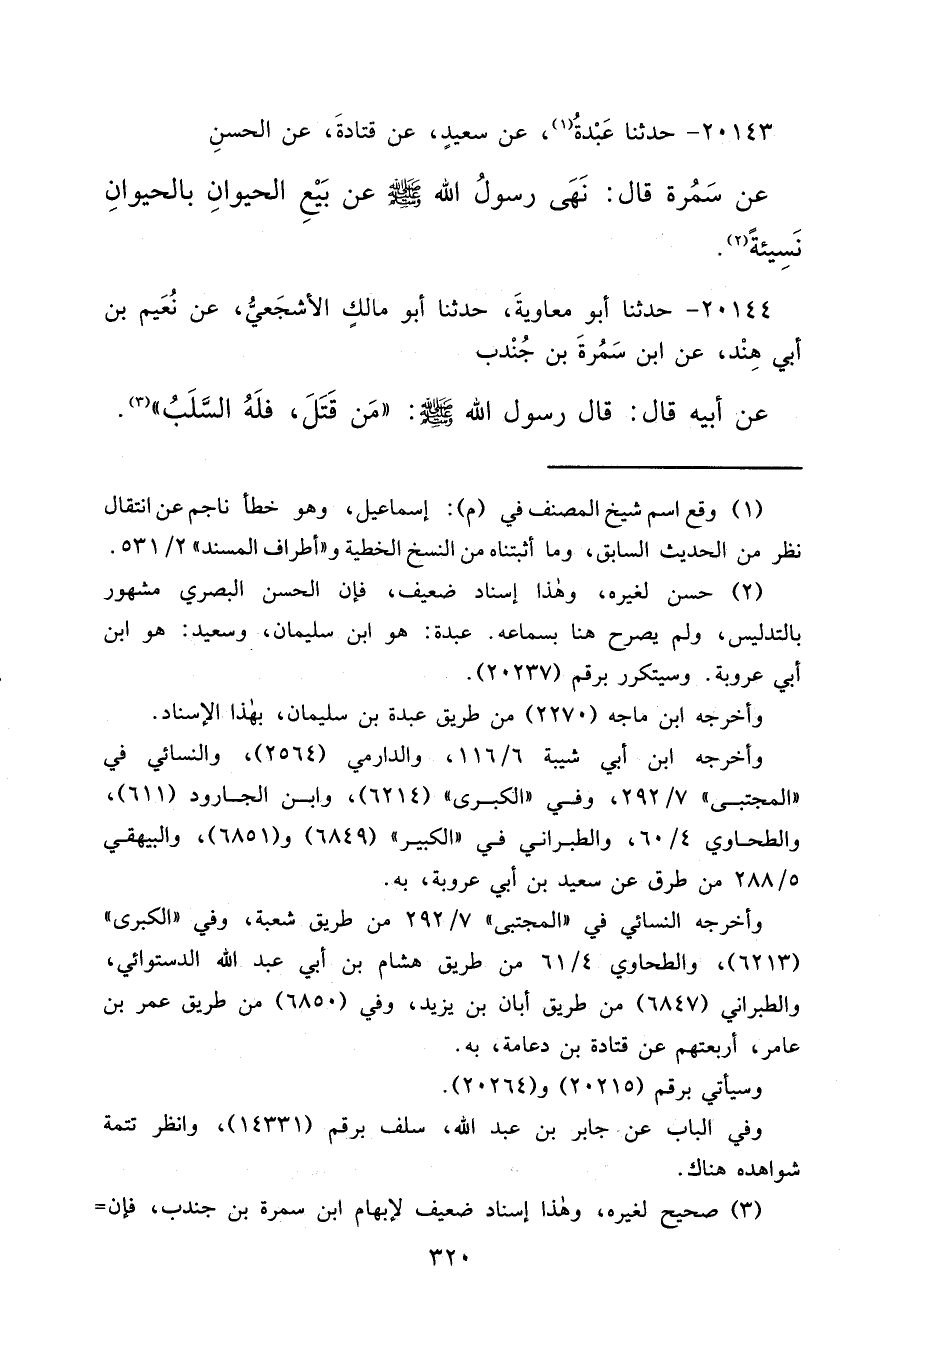 ٢٠١٤٣- حدثنا عَبْدةُ(١)، عن سعيدٍ، عن قتادةَ، عن الحسنِ
عن سَمُرة قال: نَهَى رسولُ الله ﷺ عن بَيْعِ الحيوانِ بالحيوانِ
نَسِيئةً(٢).
٢٠١٤٤- حدثنا أبو معاويةَ، حدثنا أبو مالكٍ الأشجَعيُّ، عن نُعَيم بن
أبي هِنْد، عن ابن سَمُرةَ بن جُنْدب
عن أبيه قال: قال رسول الله ﷺ: «مَن قَتَلَ، فلَهُ السَّلَبُ»(٣).
(١) وقع اسم شيخ المصنف في (م): إسماعيل، وهو خطأ ناجم عن انتقال
نظر من الحديث السابق، وما أثبتناه من النسخ الخطية و«أطراف المسند» ٥٣١/٢.
(٢) حسن لغيره، وهٰذا إسناد ضعيف، فإن الحسن البصري مشهور
بالتدليس، ولم يصرح هنا بسماعه. عبدة: هو ابن سليمان، وسعيد: هو ابن
أبي عروبة. وسيتكرر برقم (٢٠٢٣٧).
وأخرجه ابن ماجه (٢٢٧٠) من طريق عبدة بن سليمان، بهٰذا الإسناد.
وأخرجه ابن أبي شيبة ١١٦/٦، والدارمي (٢٥٦٤)، والنسائي في
«المجتبى» ٢٩٢/٧، وفي «الكبرى» (٦٢١٤)، وابن الجارود (٦١١)،
والطحاوي ٦٠/٤، والطبراني في «الكبير» (٦٨٤٩) و(٦٨٥١)، والبيهقي
٢٨٨/٥ من طرق عن سعيد بن أبي عروبة، به.
وأخرجه النسائي في «المجتبى» ٢٩٢/٧ من طريق شعبة، وفي «الكبرى»
(٦٢١٣)، والطحاوي ٦١/٤ من طريق هشام بن أبي عبد الله الدستوائي،
والطبراني (٦٨٤٧) من طريق أبان بن يزيد، وفي (٦٨٥٠) من طريق عمر بن
عامر، أربعتهم عن قتادة بن دعامة، به.
وسيأتي برقم (٢٠٢١٥) و(٢٠٢٦٤).
وفي الباب عن جابر بن عبد الله، سلف برقم (١٤٣٣١)، وانظر تتمة
شواهده هناك.
(٣) صحيح لغيره، وهٰذا إسناد ضعيف لإبهام ابن سمرة بن جندب، فإن=
٣٢٠